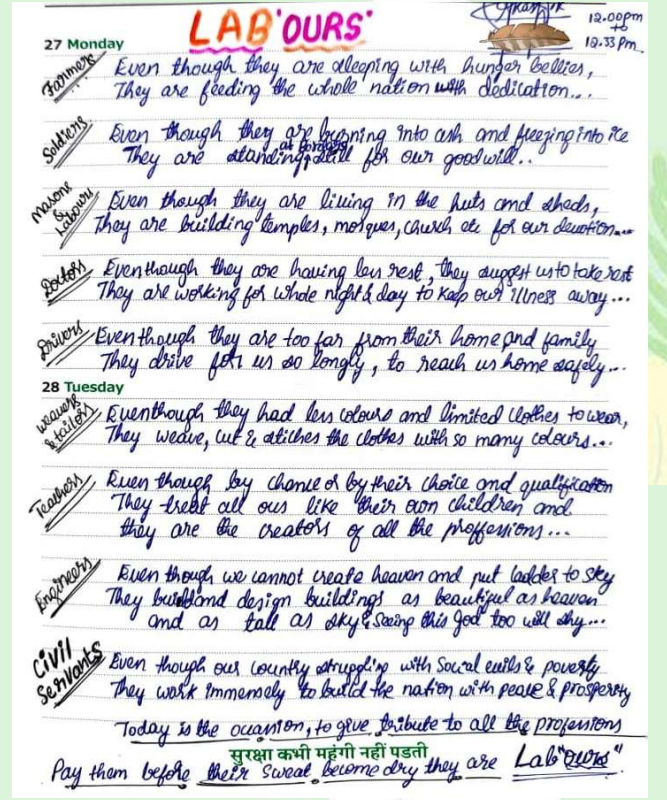 LAB'OURS'
12.00pm
to
12.33 Pm
27 Monday
Farmers
Even though they are sleeping with hunger bellies,
They are feeding the whole nation with dedication...
Soldiers
Even though they are burning into ash and freezing into ice
They are standing at borders still for our goodwill..
Masons & Labours
Even though they are living in the huts and sheds,
They are building temples, mosques, church etc for our devotion...
Doctors
Eventhough they are having less rest, they suggest us to take rest
They are working for whole night & day to keep our illness away...
Drivers
Eventhough they are too far from their home and family
They drive for us so longly, to reach us home safely...
28 Tuesday
weavers & tailors
Eventhough they had less colours and limited clothes to wear,
They weave, cut & stiches the clothes with so many colours...
Teachers
Even though by chance or by their choice and qualification
They treat all ous like their own children and
they are the creators of all the proffessions...
Engineers
Even though we cannot create heaven and put ladder to sky
They build and design buildings as beautiful as heaven
and as tall as sky & Seeing this god too will shy...
Civil Servants
Even though our country struggling with Social evils & poverty
They work immensely to build the nation with peace & prosperity
Today is the occasion, to give tribute to all the professions
सुरक्षा कभी महंगी नहीं पडती
Pay them before their sweat become dry they are Lab"ours".